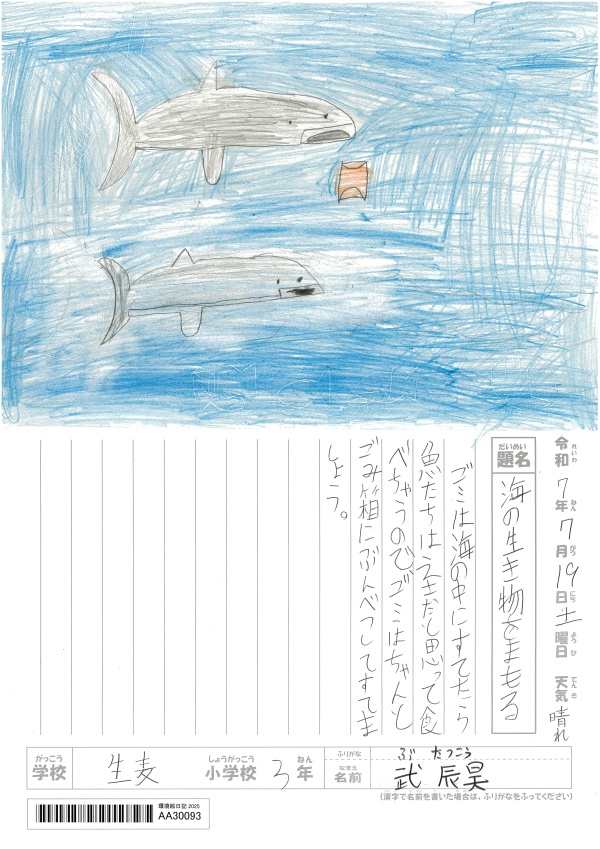 令和7年7月19日土曜日 天気 晴れ
れいわ ねん がつ にち ようび てんき
だいめい
題名 海の生き物をまもる
ゴミは海の中にすてたら
魚たちはえさだと思って食
べちゃうので、ゴミはちゃんと
ごみ箱にぶんべつしてすてま
しょう。
がっこう しょうがっこう ねん
学校 生麦 小学校 3年
ふりがな ぶ たつこう
なまえ
名前 武 辰昊
(漢字で名前を書いた場合は、ふりがなをふってください)
環境絵日記 2025
AA30093